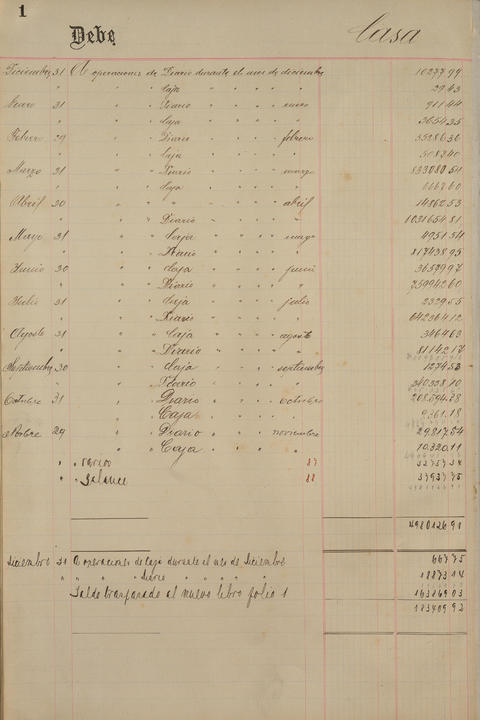 1
Debe Casa
Diciembre 31 A operaciones de Diario durante el mes de diciembre 1027799
" " " Caja " " " " 2943
Enero 31 " " Diario " " " enero 91144
" " " Caja " " " "
Febrero 29 " " Diario " " " febrero
" " " Caja " " " "
Marzo 31 " " Diario " " " marzo
" " " Caja " " " " 66660
Abril 30 " " " " " " abril 1486053
" " " Diario " " " " 103165481
Mayo 31 " " Caja " " " mayo 495154
" " " Diario " " " " 81743895
Junio 30 " " Caja " " " junio 3659997
" " " Diario " " " " 75094260
Julio 31 " " Caja " " " julio 232955
" " " Diario " " " " 64236412
Agosto 31 " " Caja " " " agosto 346463
" " " Diario " " " " 8114217
Septiembre 30 " " Caja " " " septiembre 127453
" " " Diario " " " " 24032810
Octubre 31 " " Diario " " " octubre
" " " Caja " " " " 9361.18
29 " " Diario " " " noviembre
" " " Caja " " " " 10.320.11
" " Varios 87
" " Balance 88
498012691
Diciembre 31 A operaciones de Caja durante el mes de Diciembre 66775
" " " " Diario " " " " " 1887314
Saldo transpasado al nuevo libro folio 1 16386903
18340992